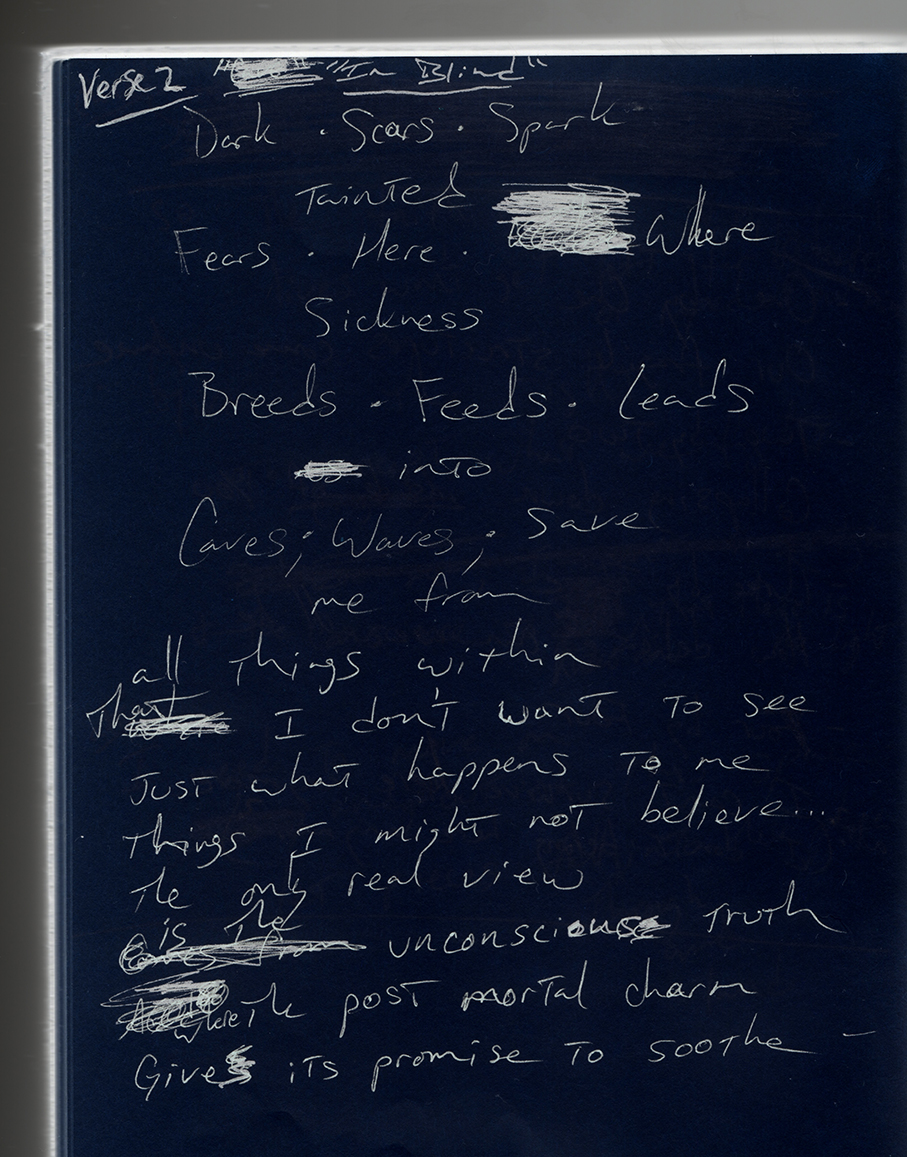 Verse 2 "In Blind"
Dark · Scars · Spark
Tainted
Fears · Here · Where
Sickness
Breeds · Feeds · Leads
into
Caves; Waves; Save
me from
all things within
That I don't want to see
Just what happens to me
Things I might not believe...
The only real view
is the unconscious truth
Where The post mortal charm
Gives its promise to soothe -